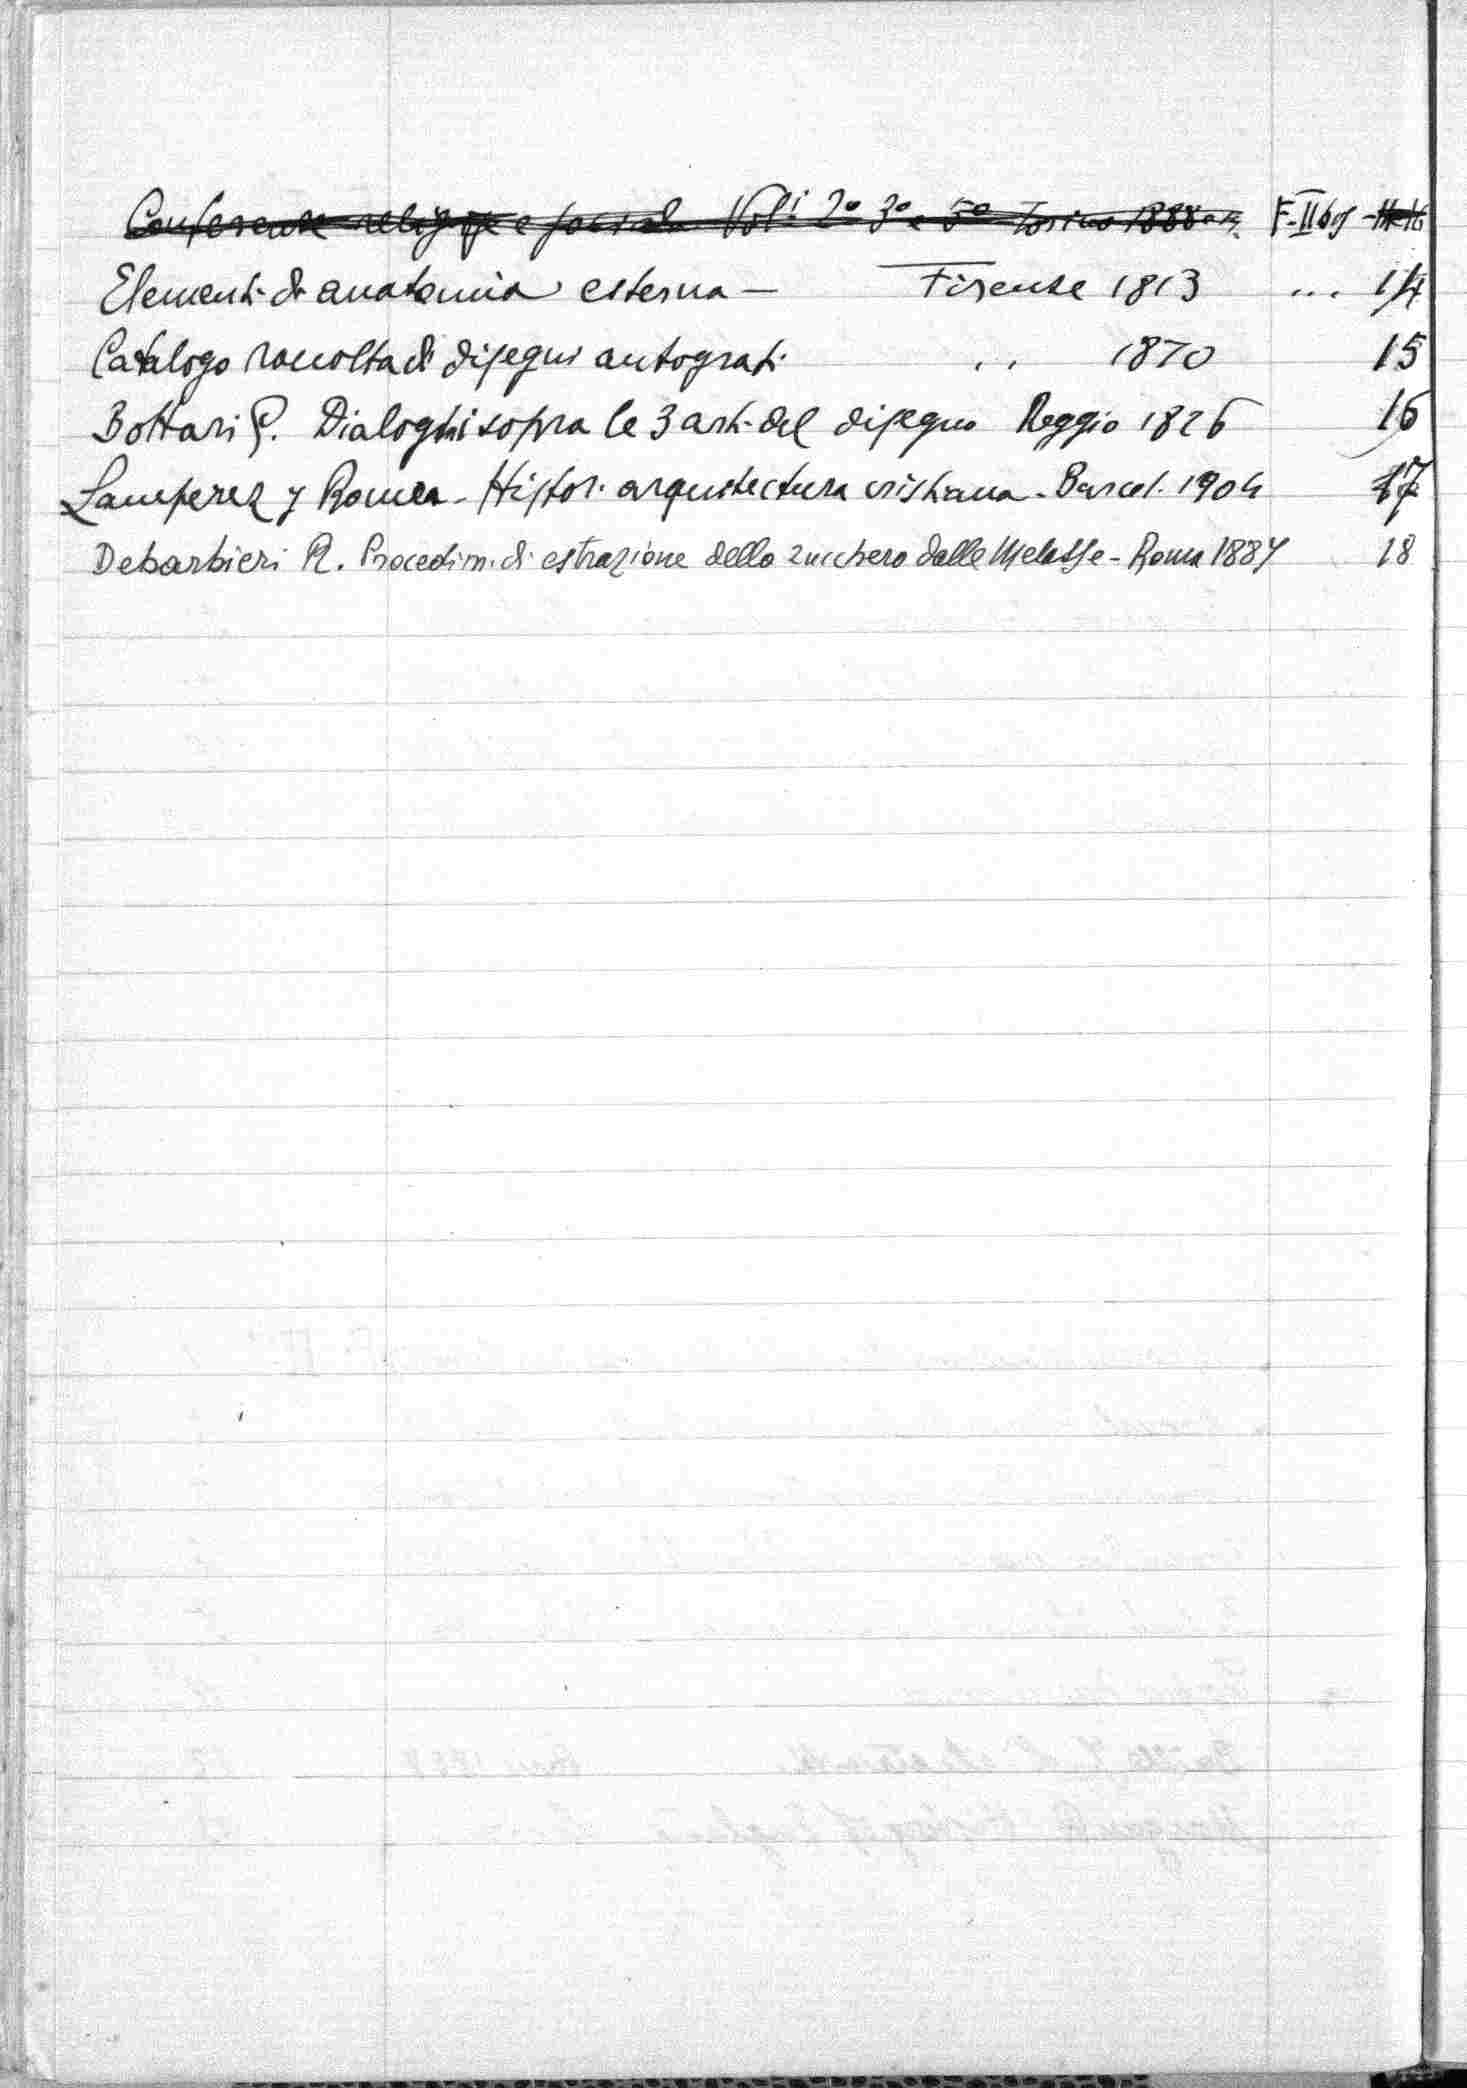 Conferenze religiose e sociali Vol.i 2º 3º e 5º Torino 1888 F-II bis
Elementi di anatomia esterna — Firenze 1813 ... 14
Catalogo raccolta di disegni autografi .. 1870 15
Bottari G. Dialoghi sopra le 3 arti del disegno Reggio 1826 16
Lamperez y Romea - Histor. arquitectura cristiana - Barcel. 1904 17
Debarbieri R. Procedim. di estrazione dello zucchero dalle Melasse - Roma 1887 18